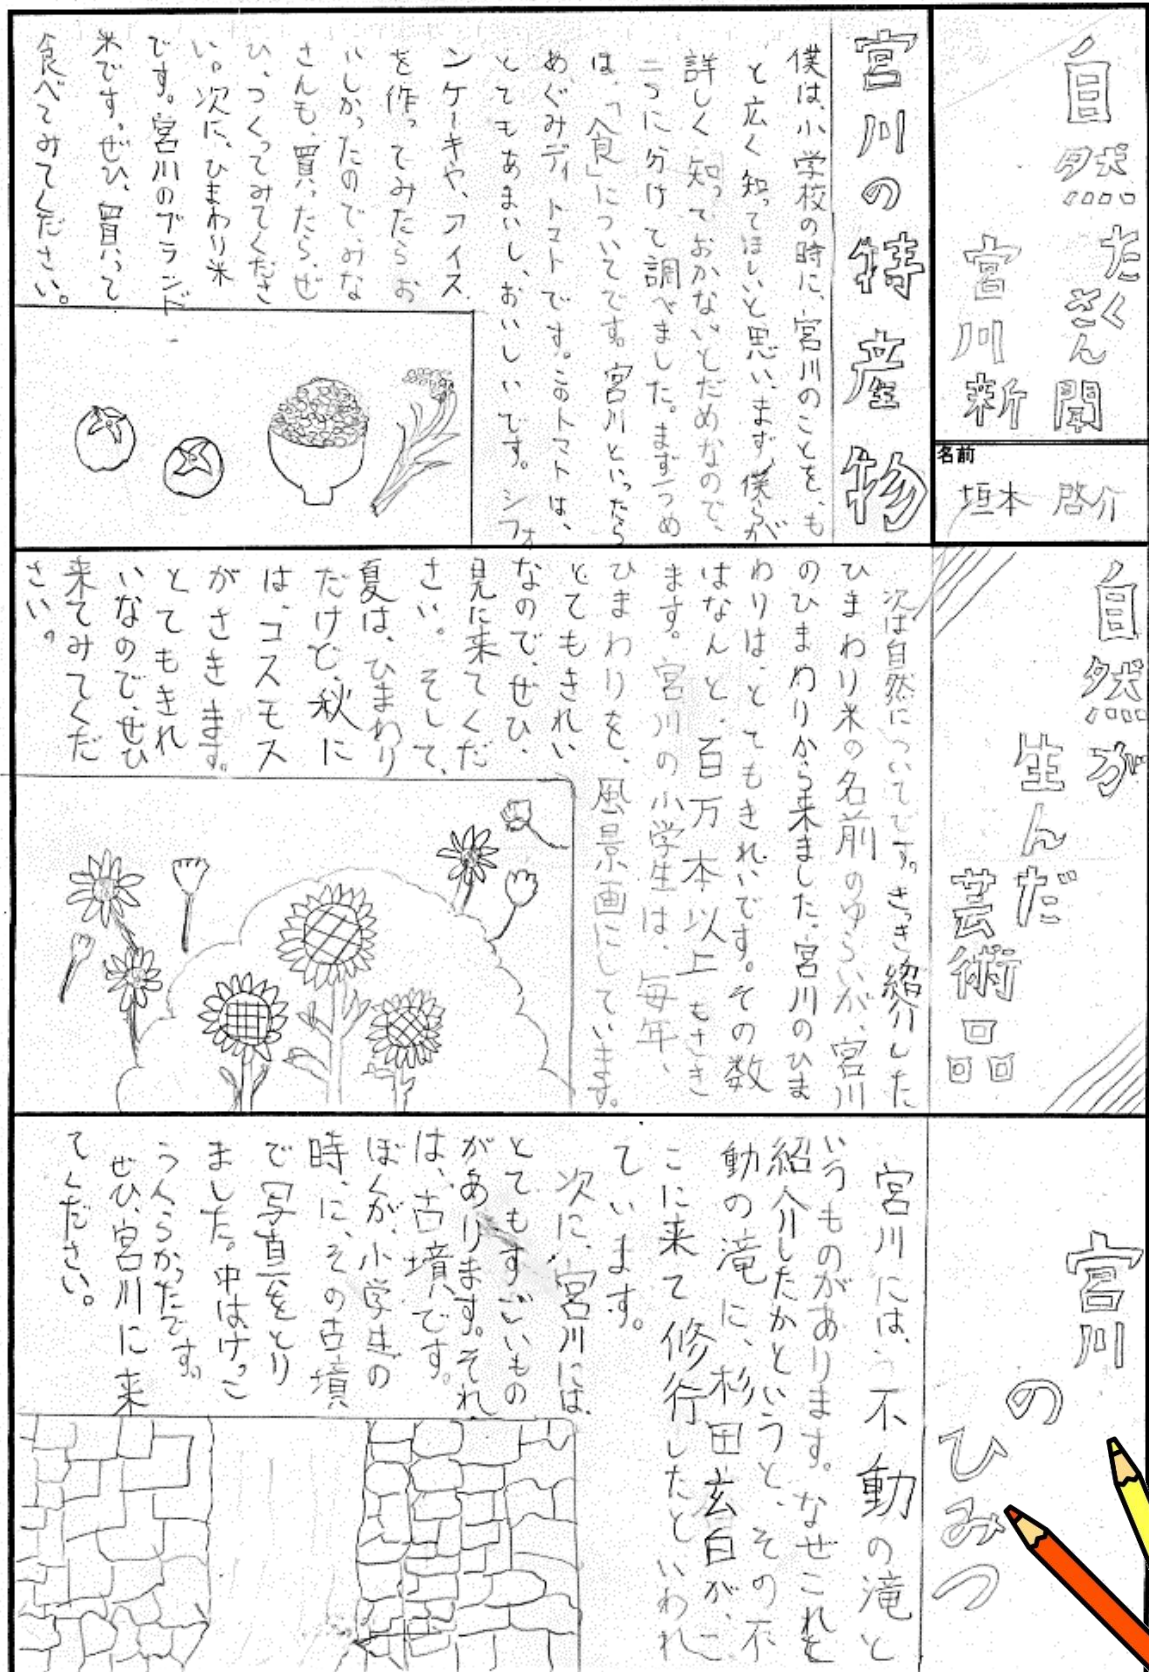 自然たくさん
宮川新聞
名前
垣本 啓介
宮川の特産物
僕は、小学校の時に、宮川のことを、も
っと広く知ってほしいと思います。僕らが
詳しく知っておかないとだめなので、
二つに分けて調べました。まず一つめ
は、「食」についてです。宮川といったら
め、ぐみディトマトです。このトマトは、
とてもあまいし、おいしいです。シフォ
ンケーキや、アイス
を作ってみたらお
いしかったので、みな
さんも、買ったら、ぜ
ひ、つくってみてくださ
い。次に、ひまわり米
です。宮川のブランド
米です。ぜひ、買って
食べてみてください。
自然が
生んだ
芸術品
次は自然についてです。さっき紹介した
ひまわり米の名前のゆらいが、宮川
のひまわりから来ました。宮川のひま
わりは、とてもきれいです。その数
はなんと、百万本以上もさき
ます。宮川の小学生は、毎年、
ひまわりを、風景画にしています。
とてもきれい
なので、ぜひ、
見に来てくだ
さい。そして、
夏は、ひまわり
だけど、秋に
は、コスモス
がさきます。
とてもきれ
いなので、ぜひ
来てみてくだ
さい。
宮川
の
ひみつ
宮川には、不動の滝と
いうものがあります。なぜこれを
紹介したかというと、その不
動の滝に、杉田玄白が、こ
こに来て修行したといわれ
ています。
次に、宮川には、
とてもすごいもの
があります。それ
は、古墳です。
ぼくが、小学生の
時、に、その古墳
で写真をとり
ました。中はけっこ
うくらかったです。
ぜひ、宮川に来
てください。